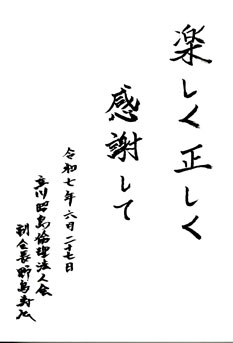 楽しく正しく
感謝して
令和七年六月二十七日
立川昭島倫理法人会
副会長 野島